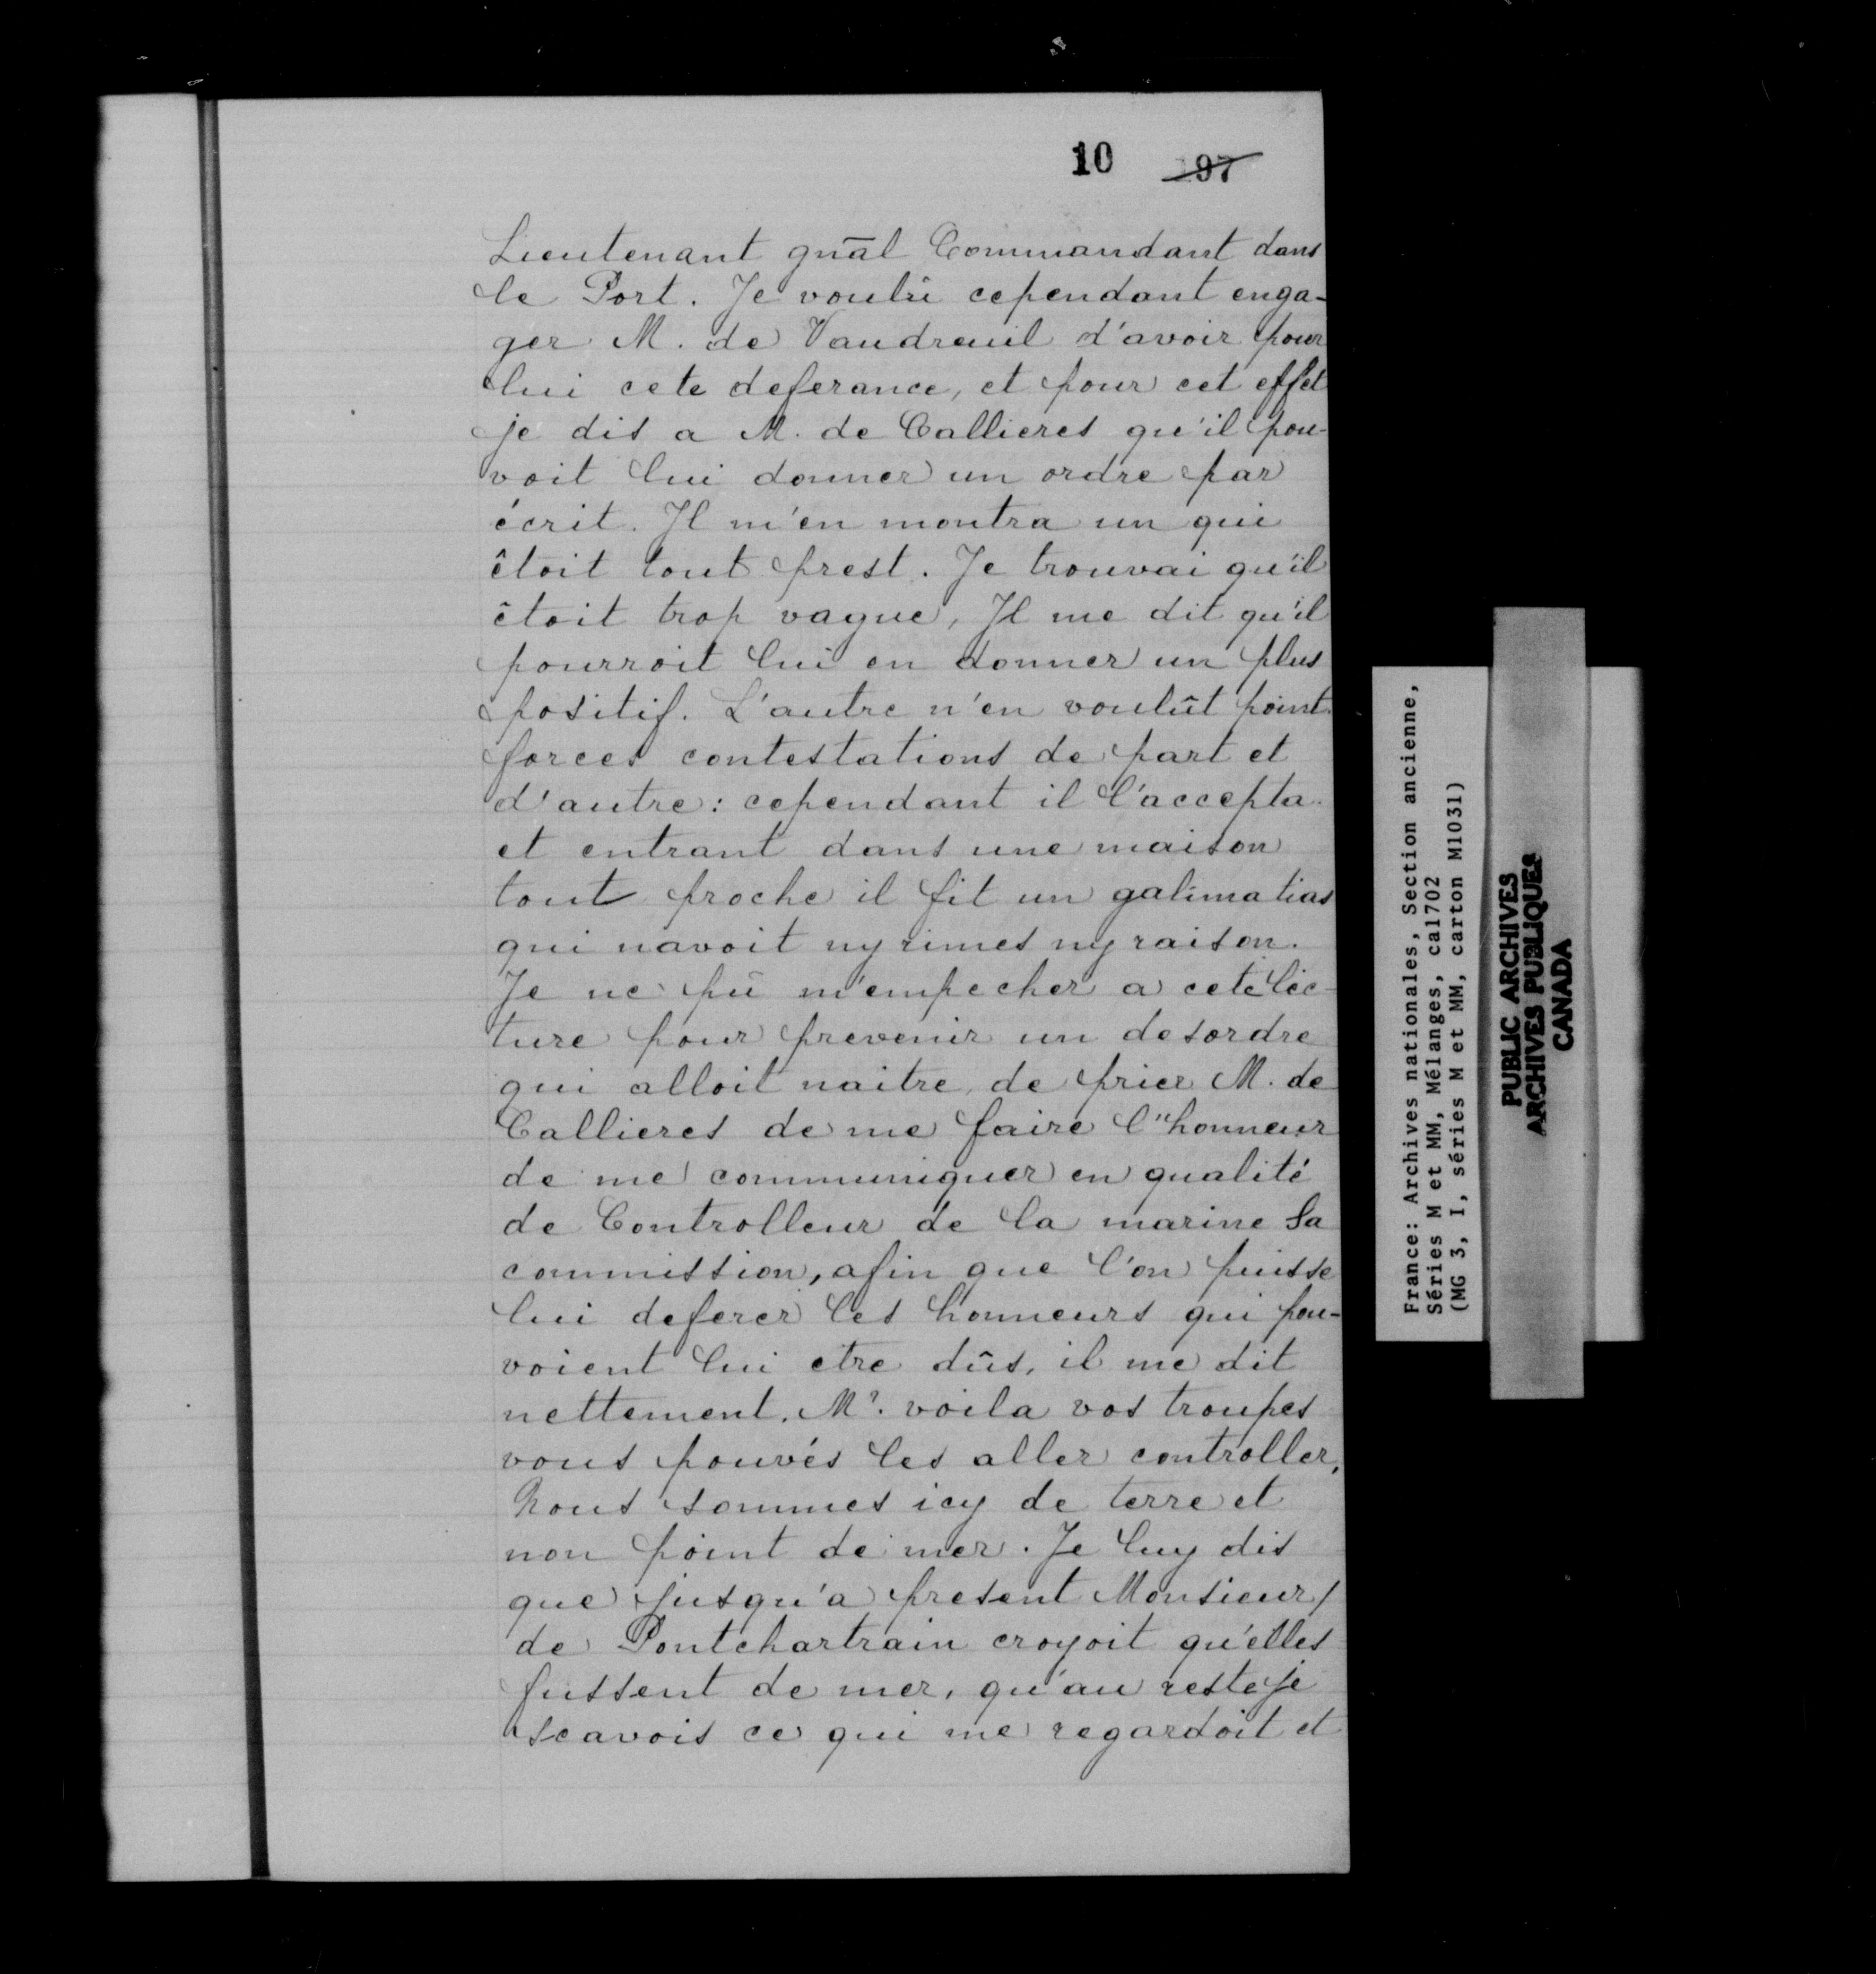 10 197
Lieutenant gnāl Commandant dans
le Port. Je voulû cependant enga-
ger M. de Vaudreuil d'avoir pour
lui cete deferance, et pour cet effet
je dis a M. de Callieres qu'il pou-
voit lui donner un ordre par
écrit. Il m'en montra un qui
êtoit tout prest. Je trouvai qu'il
êtoit trop vague, Il me dit qu'il
pourroit lui en donner un plus
positif. L'autre n'en voulût point.
forces contestations de part et
d'autre: cependant il l'accepta.
et entrant dans une maison
tout proche il fit un galimatias
qui navoit ny rimes ny raison.
Je ne pû m'empecher a cete lec-
ture pour prevenir un desordre
qui alloit naitre, de prier M. de
Callieres de me faire l'honneur
de me communiquer en qualité
de Controlleur de la marine sa
commission, afin que l'on puisse
lui deferer les honneurs qui pou-
voient lui etre dûs, il me dit
nettement. Mr. voila vos troupes
vous pouvés les aller controller,
Nous sommes icy de terre et
non point de mer. Je luy dis
que jusqu'a present Monsieur/
de Pontchartrain croyoit qu'elles
fussent de mer, qu'au reste je
scavois ce qui me regardoit et
France: Archives nationales, Section ancienne,
Séries M et MM, Mélanges, ca1702
(MG 3, I, séries M et MM, carton M1031)
PUBLIC ARCHIVES
ARCHIVES PUBLIQUES
CANADA